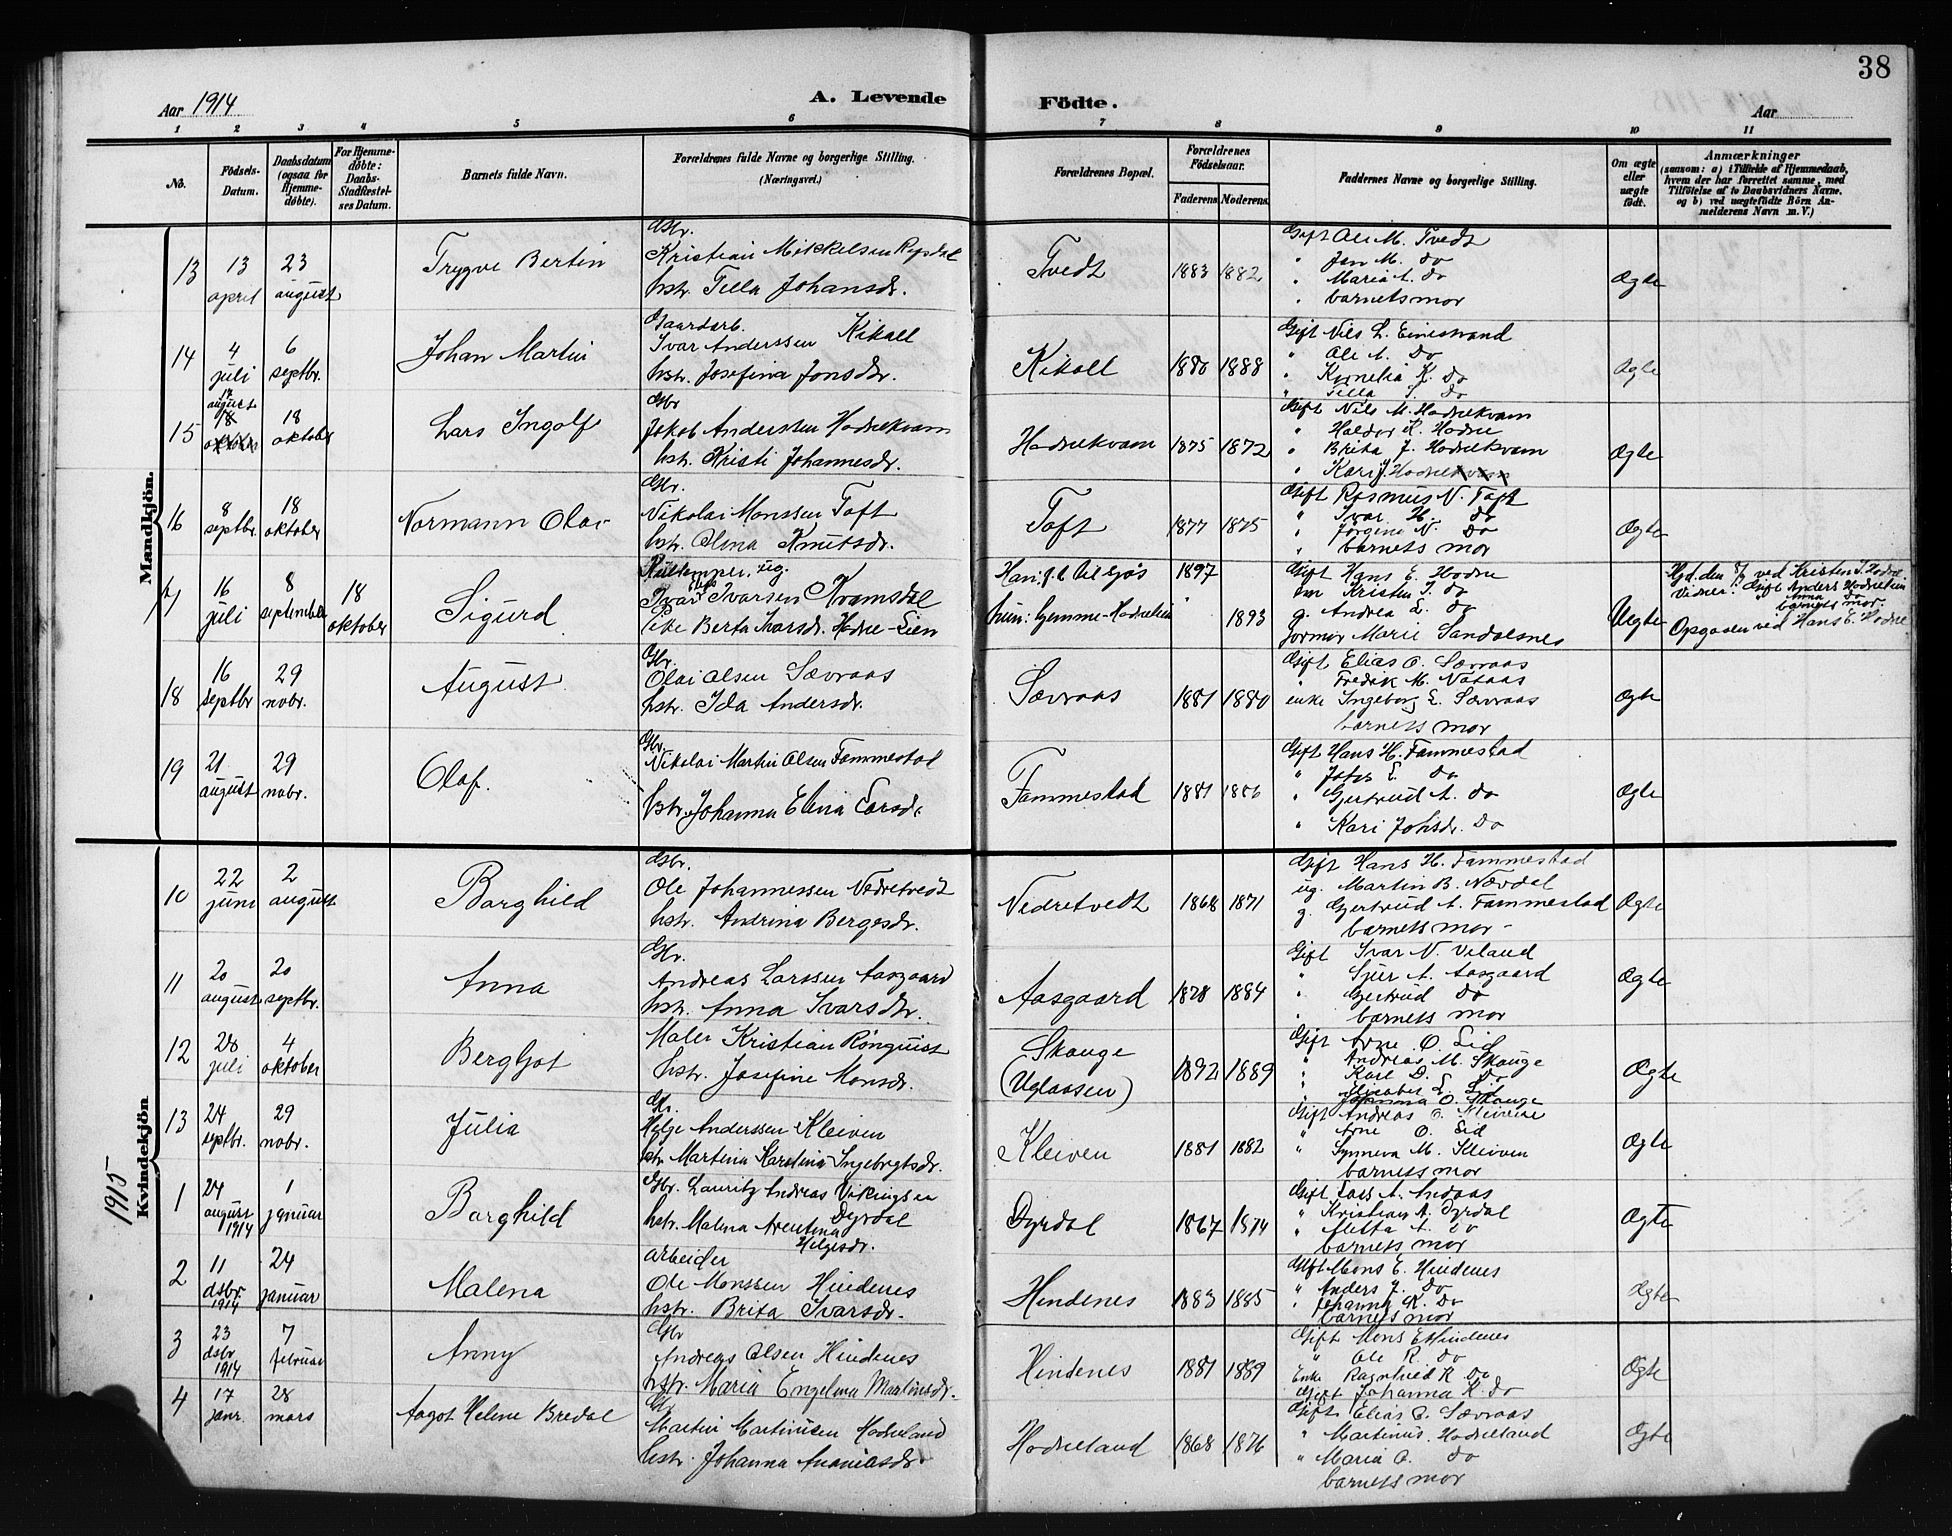 38
Aar 1914
A. Levende Födte.
Aar
1 2 3 4 5 6 7 8 9 10 11
No.
Födsels-Datum.
Daabsdatum (ogsaa for Hjemmedøbte).
For Hjemmedøbte: Daabs-Stadfæstelses Datum.
Barnets fulde Navn.
Forældrenes fulde Navne og borgerlige Stilling. (Næringsvei.)
Forældrenes Bopæl.
Forældrenes Födselsaar.
Faderens Moderens
Faddernes Navne og borgerlige Stilling.
Om ægte eller uægte födt.
Anmærkninger
(saasom: a) i Tilfælde af Hjemmedaab, hvem der har forrettet samme, med Tilföielse af to Daabsvidners Navne, og b) ved uægtefödte Börn Anmelderens Navn m. V.)
Mandkjön.
13 13 april 23 august Trygve Bertin
Gbr. Kristian Mikkelsen
hstr. Tilla Johansdr.
Tvedt 1883 1882
Gift Ole M. Tvedt
" Jon M. Do
" Maria A. Do
" barnets mor
Ægte
14 4 juli 6 septbr. Johan Martin
Gaardarb. Ivar Anderssen Kikall
hstr. Josefina Jonsdr.
Kikall 1880 1888
Gift Nils L. Einestrand
" Ole A. Do
" Kornelia K. Do
" Tilla S. Do
Ægte
15 august 18 oktober Lars Ingolf
Gbr Jakob Anderssen Hodnekvam
hstr. Kristi Johannesdr.
Hodnekvam 1875 1872
Gift Nils M. Hodnekvam
" Haldor K. Hodne
" Brita J. Hodnekvam
" Kari J. Hodne
Ægte
16 8 septbr. 18 oktober Normann Olai
Gbr. Nikolai Monssen Toft
hstr. Olina Knutsdr.
Toft 1877 1875
Gift Rasmus N. Toft
" Ivar H. Do
" Jorgine N. Do
" barnets mor
Ægte
17 16 juli 8 september 18 oktober Sigurd
ug. Ivar Ivarsen Kvamsdal
Pike Berta Ivarsdr. Hodne-Lien
Han: p.t. til sjøs 1897
hun: hjemme-Hodnelien 1893
Gift Hans E. Hodne
em Kristen I. Do
g. Andrea E. Do
Jormor Marie Sandalsnes
Uegte
Hjd. den 8/9 ved Kristen I. Hodne
Vidner: Gift Anders Hodnelien
Anna Do
barnets mor.
Opgaven ved Hans E. Hodne
18 16 septbr 29 nobr. August
Gbr. Olai Olsen Sævraas
hstr. Ida Andersdr.
Sævraas 1881 1880
Gift Elias O. Sævraas
" Fredrik M. Nataas
enke Ingeborg E. Sævraas
barnets mor
Ægte
19 21 august 29 nobr. Olaf.
Gbr. Nikolai Martin Olsen Fammestad
hstr. Johanna Elina Larsdr.
Fammestad 1881 1886
Gift Hans H. Fammestad
" Jofor E. Do
" Gjertrud A. Do
" Kari Johsdr. Do
Ægte
Kvindekjön
10 22 juni 2 august Borghild
Gbr. Ole Johannessen Nedretvedt
hstr. Andrina Bergesdr.
Nedretvedt 1868 1871
Gift Hans H. Fammestad
ug. Martin B. Nævdal
g. Gjertrud A. Fammestad
barnets mor -
Ægte
11 20 august 20 septbr. Anna
Gbr. Andreas Larssen Aasgaard
hstr. Anna Ivarsdtr.
Aasgaard 1878 1884
Gift Ivar N. Veland
" Sjur A. Aasgaard
" Gjertrud Do
" barnets mor
Ægte
12 28 juli 4 oktober Bergljot
Maler Kristian Rönquist
hstr. Josefine Monsdr.
Skauge (Uglaasen) 1892 1889
Gift Arne O. Eid
" Andreas M. Skauge
" Karl D. Do
" Elisabet E. Eid
O. Skauge
Ægte
13 24 septbr. 29 nobr. Julia
Gbr. Helje Anderssen Kleiven
hstr. Martina Karolina Ingebrigtsdr.
Kleiven 1881 1882
Gift Andreas O. Kleivene
" Arne O. Eid
" Synneva M. Kleiven
barnets mor
Ægte
1915
1 24 august 1914 1 januar Borghild
Gbr. Lauritz Andreas Vikingsen Dyrdal
hstr. Malena Arentina Helgesdr.
Dyrdal 1867 1874
Gift Lars A. Andaas
" Kristian A. Dyrdal
" Metta A. Do
barnets mor
Ægte
2 11 dsbr. 1914 24 januar Malena
Arbeider Ole Monssen Hindenes
hstr. Brita Ivarsdr.
Hindenes 1883 1885
Gift Mons E. Hindenes
" Anders J. Do
" Johanna K. Do
barnets mor
Ægte
3 23 dsbr 1914 7 februar Anny
Gbr Andreas Olsen Hindenes
hstr. Maria Engelina Martinsdr.
Hindenes 1881 1889
Gift Mons E Hindenes
" Ole R. Do
Enke Ragnhild R Do
Gift Johanna K. Do
Ægte
4 17 janr. 28 mars Aagot Helene Bredal
Gbr Martin Martinusen Hodneland
hstr. Johanna Ananiasdr
Hodneland 1868 1876
Gift Elias O. Sævraas
" Martinus Hodneland
" Maria O. Do
barnets mor
Ægte